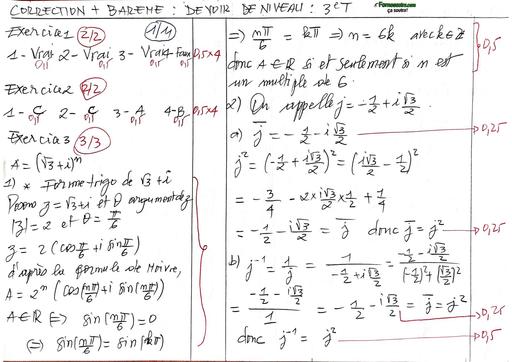 CORRECTION + BAREME : DEVOIR DE NIVEAU : 3e T
Fomesoutra.com
ça soutra !
1/4
Exercice 1 2/2
1 - Vrai 2 - Vrai 3 - Vrai 4 - Faux 0,5x4
0,5 0,5 0,5
Exercice 2 2/2
1 - C 2 - C 3 - A 4 - B 0,5x4
0,5 0,5 0,5 0,5
Exercice 3 3/3
A = (√3 + i)^n
1) * Forme trigo de √3 + i
Posons z = √3 + i et θ argument de z
|z| = 2 et θ = π/6
z = 2(cos π/6 + i sin π/6)
d'après la formule de Moivre,
A = 2^n (cos(nπ/6) + i sin(nπ/6))
A ∈ ℝ ⇔ sin(nπ/6) = 0
⇔ sin(nπ/6) = sin(kπ)
⇒ nπ/6 = kπ ⇒ n = 6k avec k ∈ ℤ
0,5
donc A ∈ ℝ si et seulement si n est
un multiple de 6.
2) On appelle j = -1/2 + i√3/2.
a) j̅ = -1/2 - i√3/2 → 0,25
j² = (-1/2 + i√3/2)² = (i√3/2 - 1/2)²
= -3/4 - 2 × i√3/2 × 1/2 + 1/4
= -1/2 - i√3/2 = j̅ donc j̅ = j² → 0,25
b) j⁻¹ = 1/j = 1/(-1/2 + i√3/2) = (-1/2 - i√3/2)/((-1/2)² + (√3/2)²)
= (-1/2 - i√3/2)/1 = -1/2 - i√3/2 = j̅ = j² → 0,25
donc j⁻¹ = j² → 0,5